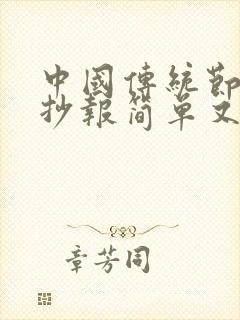 中國傳統節
抄報简单又
章芳同